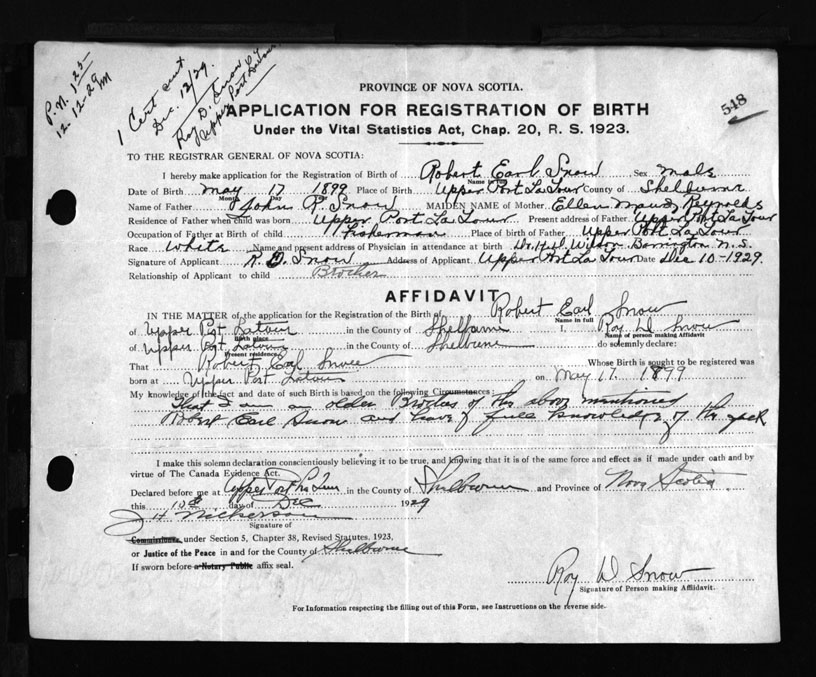 P.N. 125
12-12-29 M
1 Cert sent
Dec. 12/29.
Roy D. Snow
Upper Port LaTour
548
PROVINCE OF NOVA SCOTIA.
APPLICATION FOR REGISTRATION OF BIRTH
Under the Vital Statistics Act, Chap. 20, R. S. 1923.
TO THE REGISTRAR GENERAL OF NOVA SCOTIA:
I hereby make application for the Registration of Birth of Robert Earl Snow Sex Male
Name in full
Date of Birth May 17 1899 Place of Birth Upper Port La Tour County of Shelburne
Month Day
Name of Father John R. Snow MAIDEN NAME of Mother Ellen Maud Reynolds
Residence of Father when child was born Upper Port La Tour Present address of Father Upper Port La Tour
Occupation of Father at Birth of child Fisherman Place of birth of Father Upper Port La Tour
Race White Name and present address of Physician in attendance at birth Dr. Wilson Barrington N.S.
Signature of Applicant R. D. Snow Address of Applicant Upper Port La Tour Date Dec 10-1929
Relationship of Applicant to child Brother
AFFIDAVIT
IN THE MATTER of the application for the Registration of the Birth of Robert Earl Snow
Name in full
of Upper Port Latour in the County of Shelburne I, Roy D Snow
Birth place Name of person making Affidavit
of Upper Port Latour in the County of Shelburne do solemnly declare:
Present residence
That Robert Earl Snow Whose Birth is sought to be registered was
born at Upper Port Latour on May 17. 1899
My knowledge of the fact and date of such Birth is based on the following Circumstances:
that I am an older Brother of the above mentioned
Robert Earl Snow and have full knowledge of the fact
I make this solemn declaration conscientiously believing it to be true, and knowing that it is of the same force and effect as if made under oath and by
virtue of The Canada Evidence Act.
Declared before me at Upper Port La Tour in the County of Shelburne and Province of Nova Scotia
this 10th day of Dec 1929
J H Nickerson
Signature of
Commissioner, under Section 5, Chapter 38, Revised Statutes, 1923,
or Justice of the Peace in and for the County of Shelburne
If sworn before a Notary Public affix seal.
Roy D Snow
Signature of Person making Affidavit.
For Information respecting the filling out of this Form, see Instructions on the reverse side.